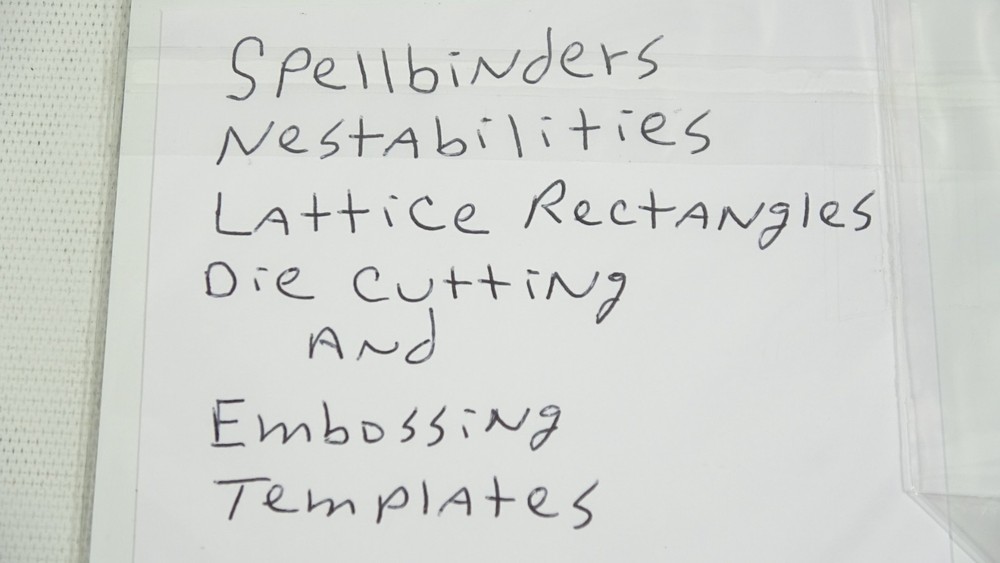 Spellbinders
Nestabilities
Lattice Rectangles
Die cutting
And
Embossing
Templates